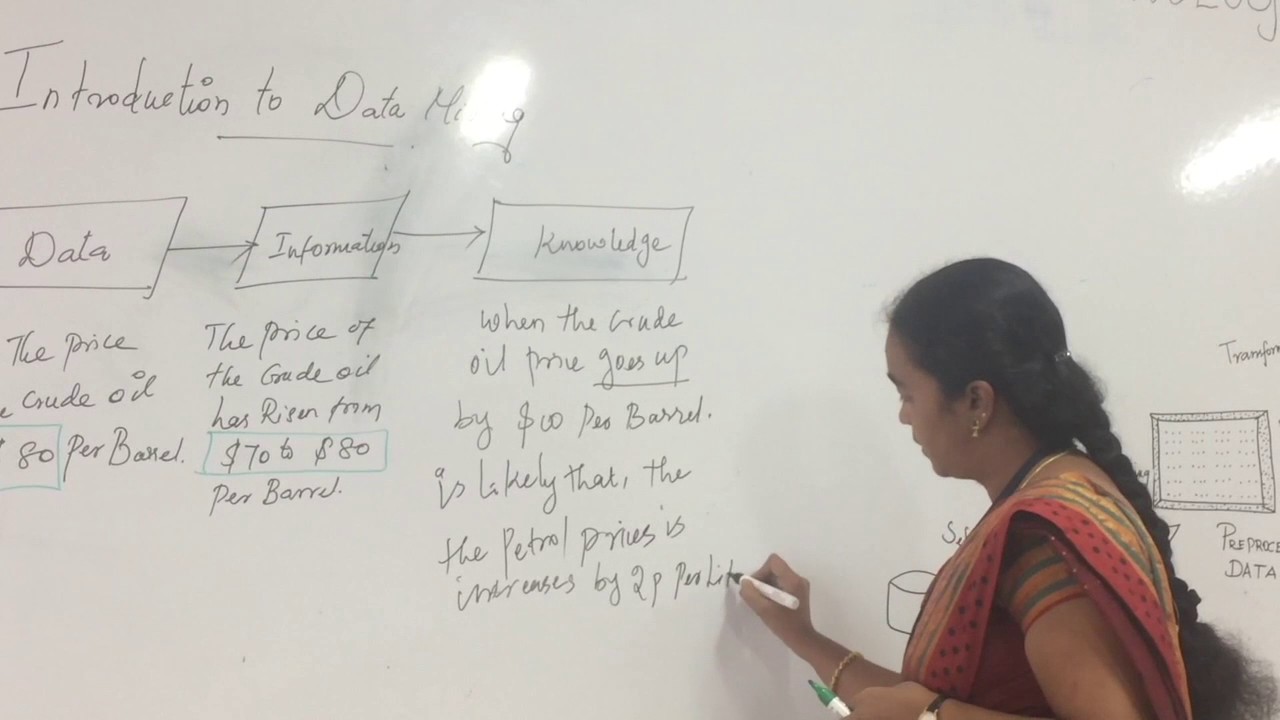 Introduction to Data Mining
Data
Information
Knowledge
The Price
Crude oil
80 Per Barrel.
The Price of
the Crude oil
has Risen from
$70 to $80
Per Barrel.
when the Crude
oil price goes up
by $10 Per Barrel.
is likely that, the
the Petrol prices is
increases by 2p Per Lit
Transfor
PREPROCE
DATA